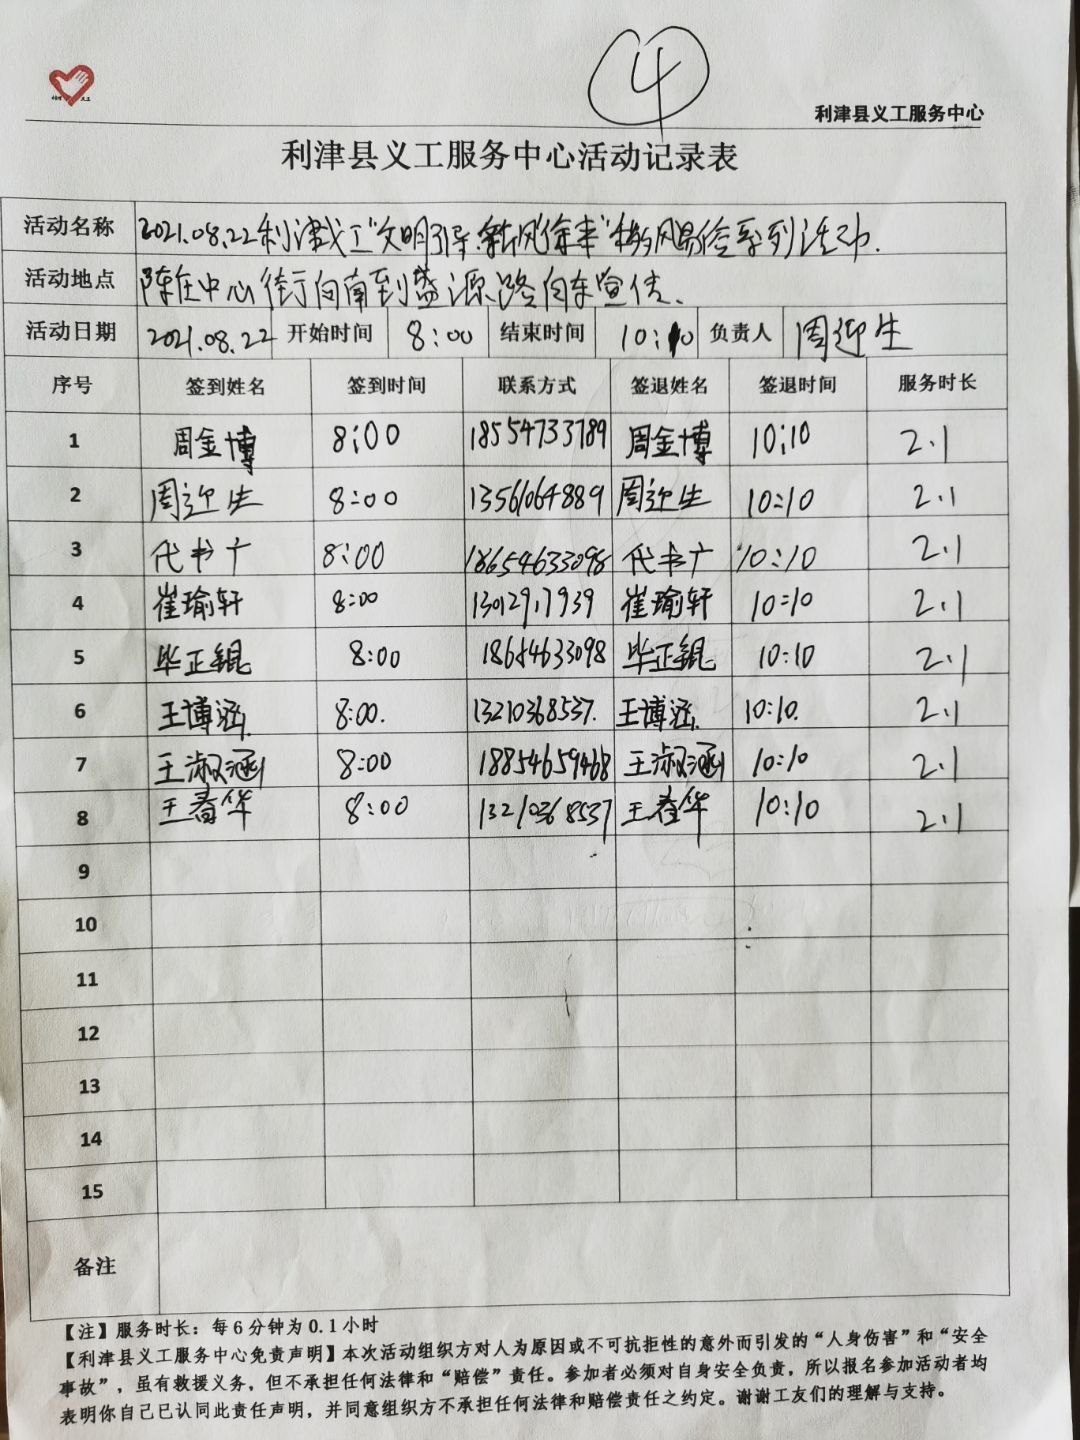 4
利津县义工服务中心
利津县义工服务中心活动记录表
活动名称 2021.08.22利津义工"文明引导.新风徐来"移风易俗系列活动.
活动地点 陈庄中心街向南到盛源路向东宣传.
活动日期 2021.08.22 开始时间 8:00 结束时间 10:10 负责人 周迎生
序号 签到姓名 签到时间 联系方式 签退姓名 签退时间 服务时长
1 周金博 8:00 18554733789 周金博 10:10 2.1
2 周迎生 8:00 13561064889 周迎生 10:10 2.1
3 代书广 8:00 18654633098 代书广 10:10 2.1
4 崔瑜轩 8:00 崔瑜轩 10:10 2.1
5 毕正锟 8:00 18654633098 毕正锟 10:10 2.1
6 王博涵. 8:00. 13210368537. 王博涵. 10:10. 2.1
7 王淑涵 8:00 18854659468 王淑涵 10:10 2.1
8 王春华 8:00 13210368537 王春华 10:10 2.1
9
10
11
12
13
14
15
备注
【注】服务时长：每6分钟为0.1小时
【利津县义工服务中心免责声明】本次活动组织方对人为原因或不可抗拒性的意外而引发的“人身伤害”和“安全
事故”，虽有救援义务，但不承担任何法律和“赔偿”责任。参加者必须对自身安全负责，所以报名参加活动者均
表明你自己已认同此责任声明，并同意组织方不承担任何法律和赔偿责任之约定。谢谢工友们的理解与支持。